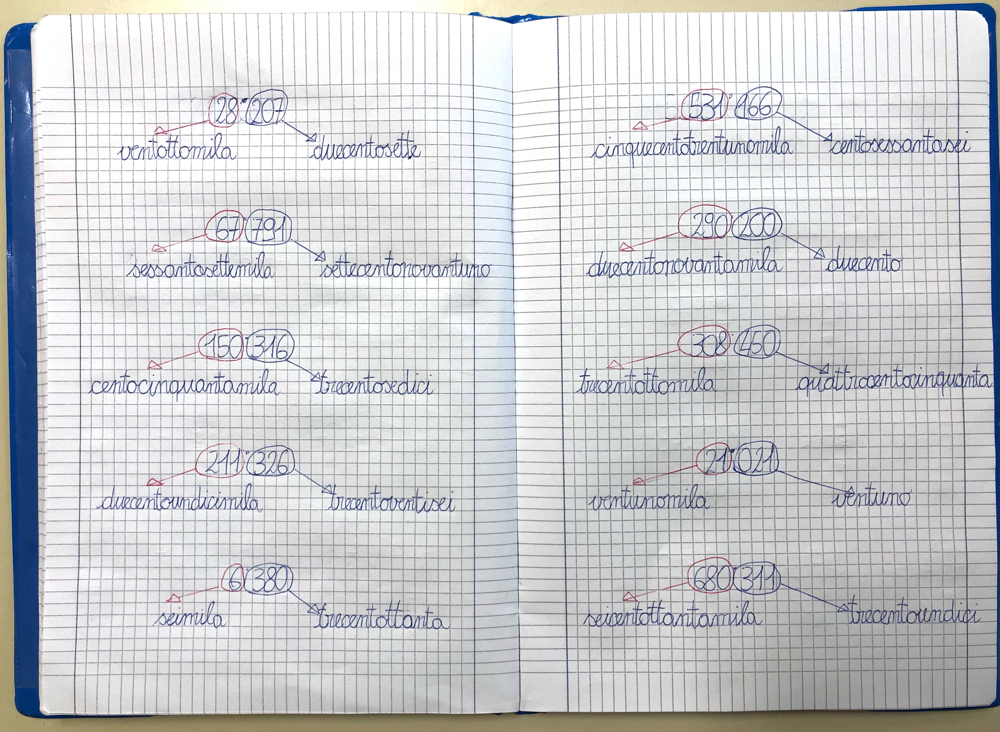 28·207
ventottomila duecentosette
67·791
sessantasettemila settecentonovantuno
150·316
centocinquantamila trecentosedici
211·326
duecentoundicimila trecentoventisei
6·380
seimila trecentottanta
531·166
cinquecentotrentunomila centosessantasei
290·200
duecentonovantamila duecento
308·450
trecentottomila quattrocentocinquanta
21·021
ventunomila ventuno
680·311
seicentottantamila trecentoundici